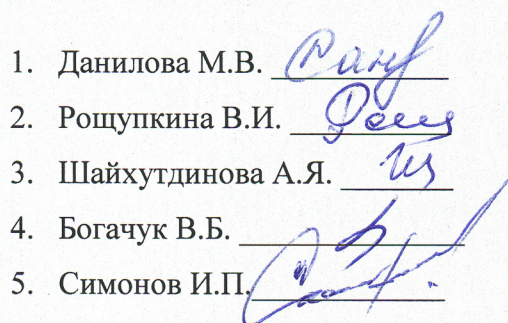 1. Данилова М.В.
2. Рощупкина В.И.
3. Шайхутдинова А.Я.
4. Богачук В.Б.
5. Симонов И.П.